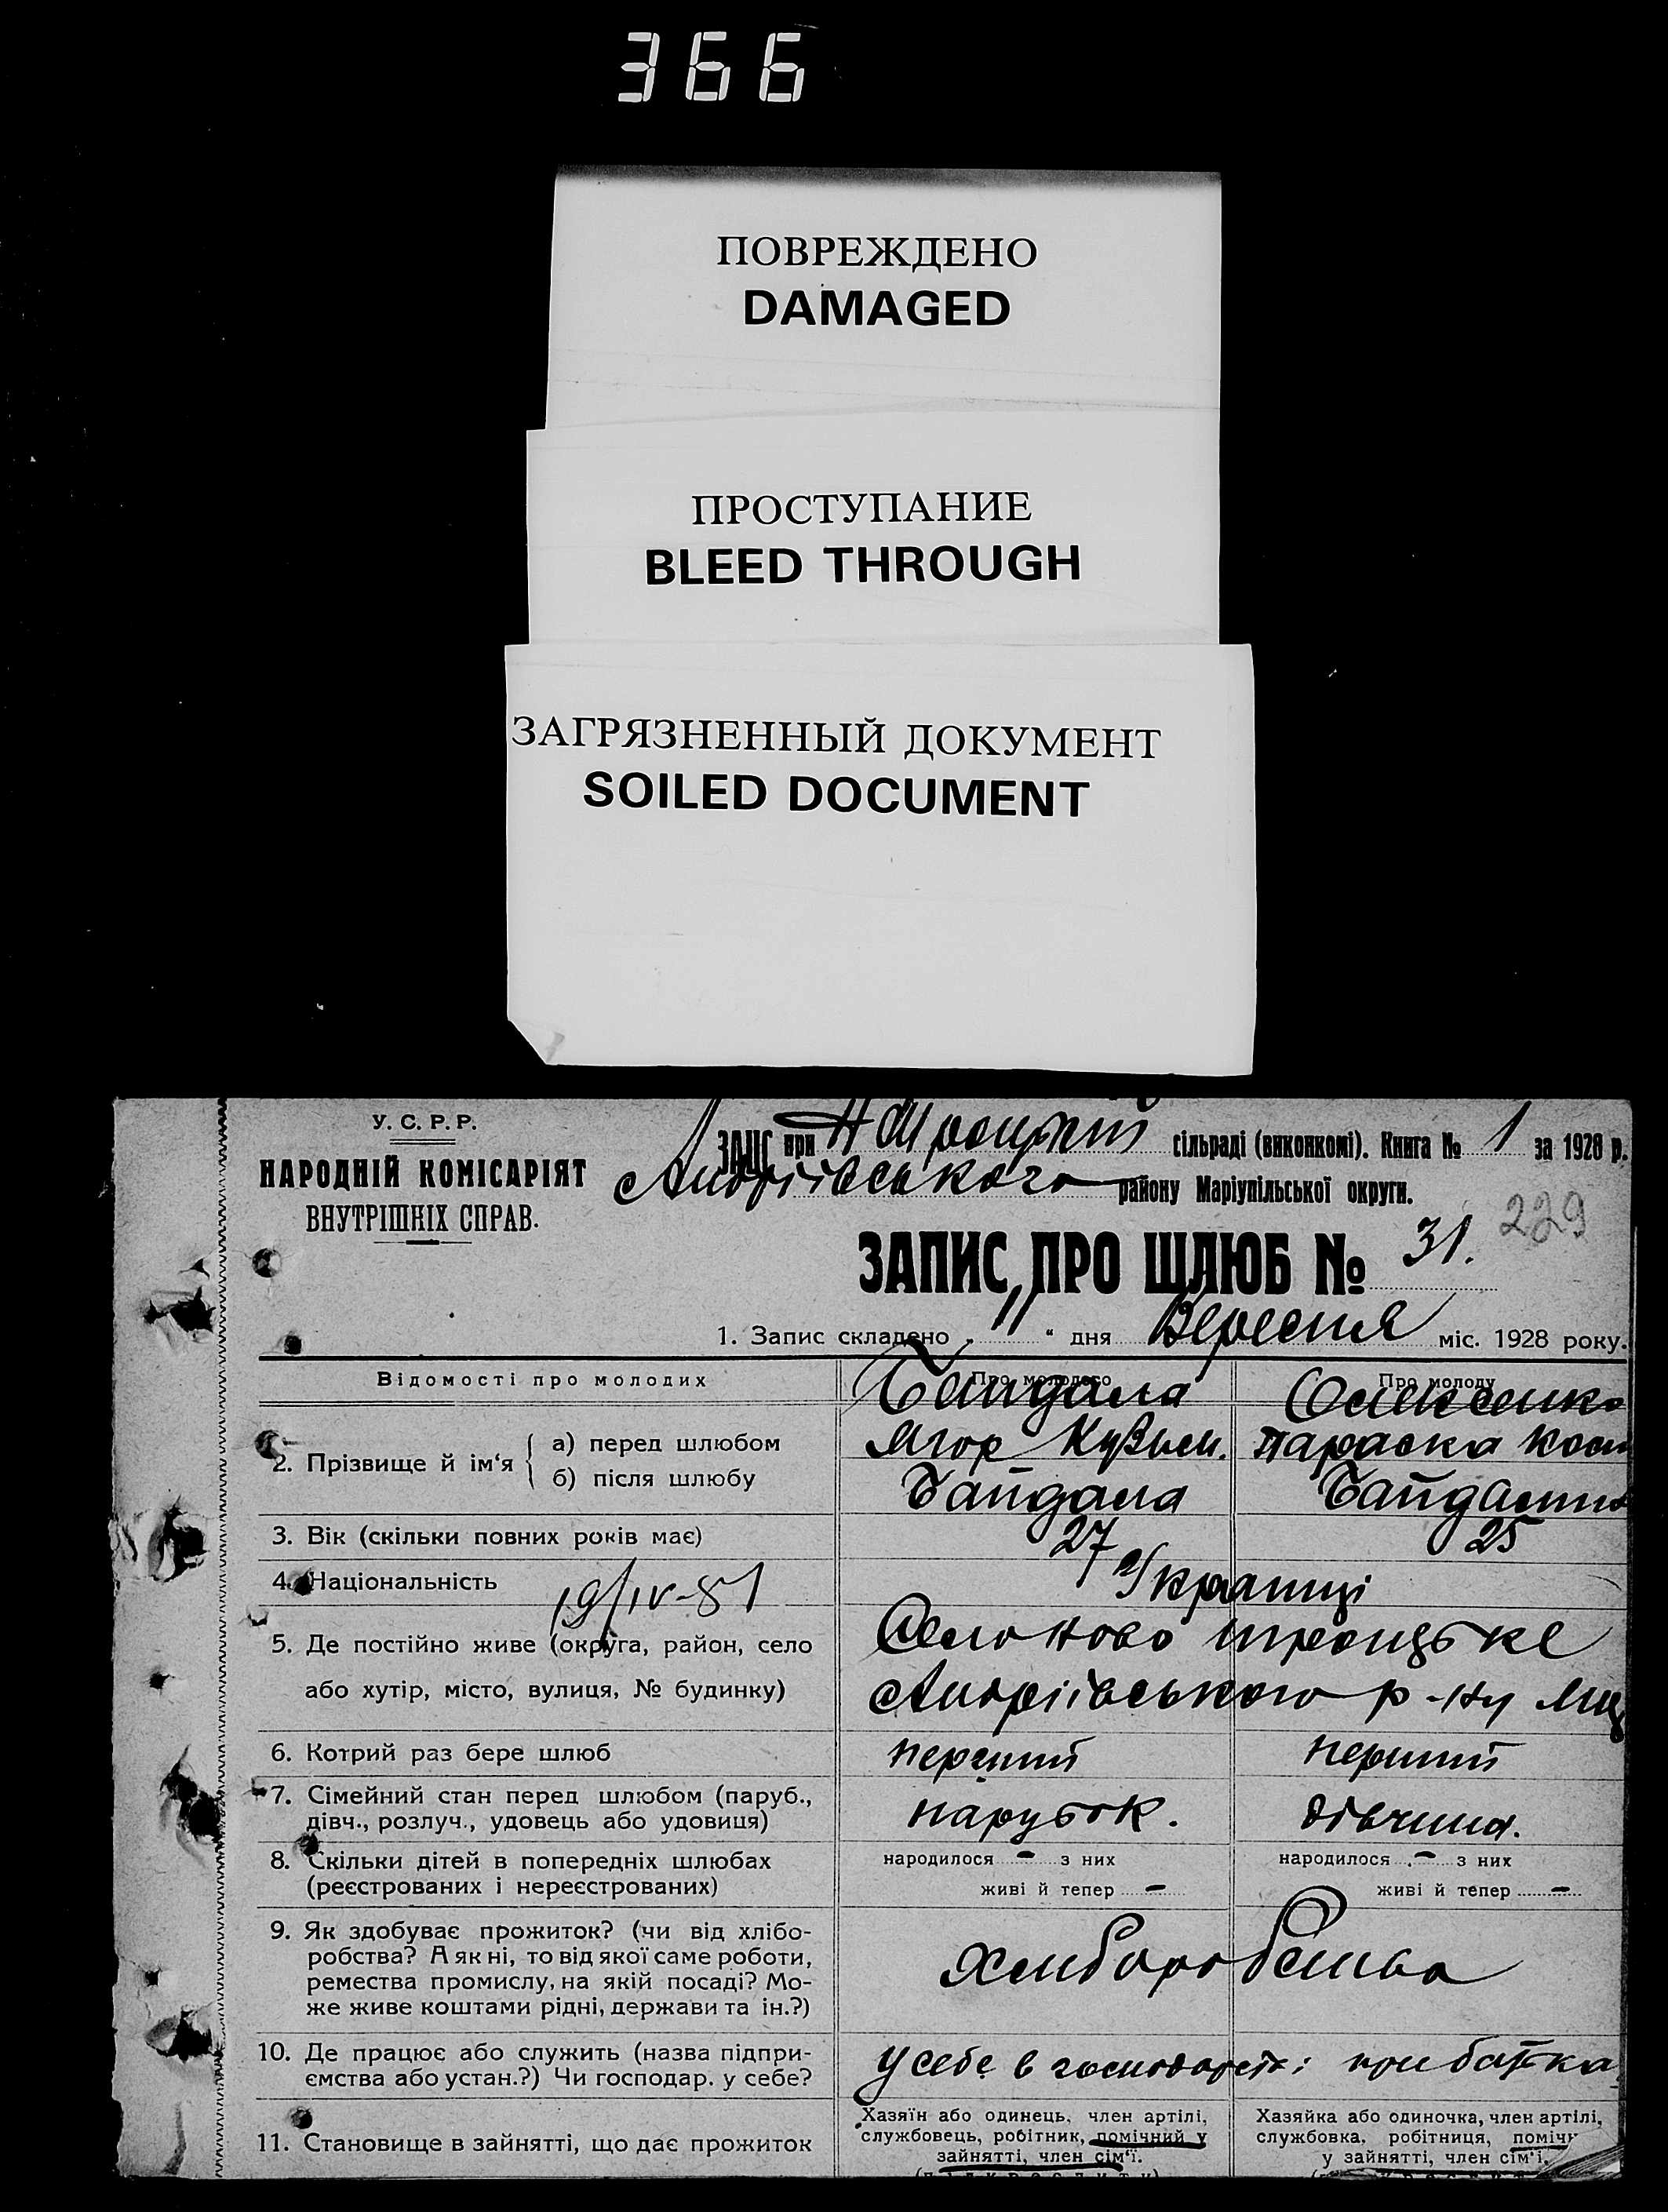 366
ПОВРЕЖДЕНО
DAMAGED
ПРОСТУПАНИЕ
BLEED THROUGH
ЗАГРЯЗНЕННЫЙ ДОКУМЕНТ
SOILED DOCUMENT
У. С. Р. Р.
НАРОДНІЙ КОМІСАРІЯТ
ВНУТРІШНІХ СПРАВ.
ЗАПИС при Н Троицькій сільраді (виконкомі). Книга № 1 за 1928 р.
Андріївського району Маріупільської округи.
229
ЗАПИС ПРО ШЛЮБ № 31.
1. Запис складено „ 11 “ дня Вересня міс. 1928 року.
Відомості про молодих Про молодого Про молоду
Байдала Олексенко
2. Прізвище й ім‘я { а) перед шлюбом Ягор Кузьм. Параска Кос
б) після шлюбу Байдала Байдалина
3. Вік (скільки повних років має) 27 25
4. Національність Українці
19/IV-51
5. Де постійно живе (округа, район, село Село Ново Троицьке
або хутір, місто, вулиця, № будинку) Андріївського р-ну
6. Котрий раз бере шлюб перший перший
7. Сімейний стан перед шлюбом (паруб., парубок. дівчина.
дівч., розлуч., удовець або удовиця)
8. Скільки дітей в попередніх шлюбах народилося - з них народилося - з них
(реєстрованих і нереєстрованих) живі й тепер - живі й тепер -
9. Як здобуває прожиток? (чи від хлібо-
робства? А як ні, то від якої саме роботи, хлиборобства
ремества промислу, на якій посаді? Мо-
же живе коштами рідні, держави та ін.?)
10. Де працює або служить (назва підпри- у себе в господарстві при батька
ємства або устан.?) Чи господар. у себе?
11. Становище в зайнятті, що дає прожиток
Хазяїн або одинець, член артілі,
службовець, робітник, помічний у
зайнятті, член сім‘ї.
Хазяйка або одиночка, член артілі,
службовка, робітниця, поміч
у зайнятті, член сім‘ї.